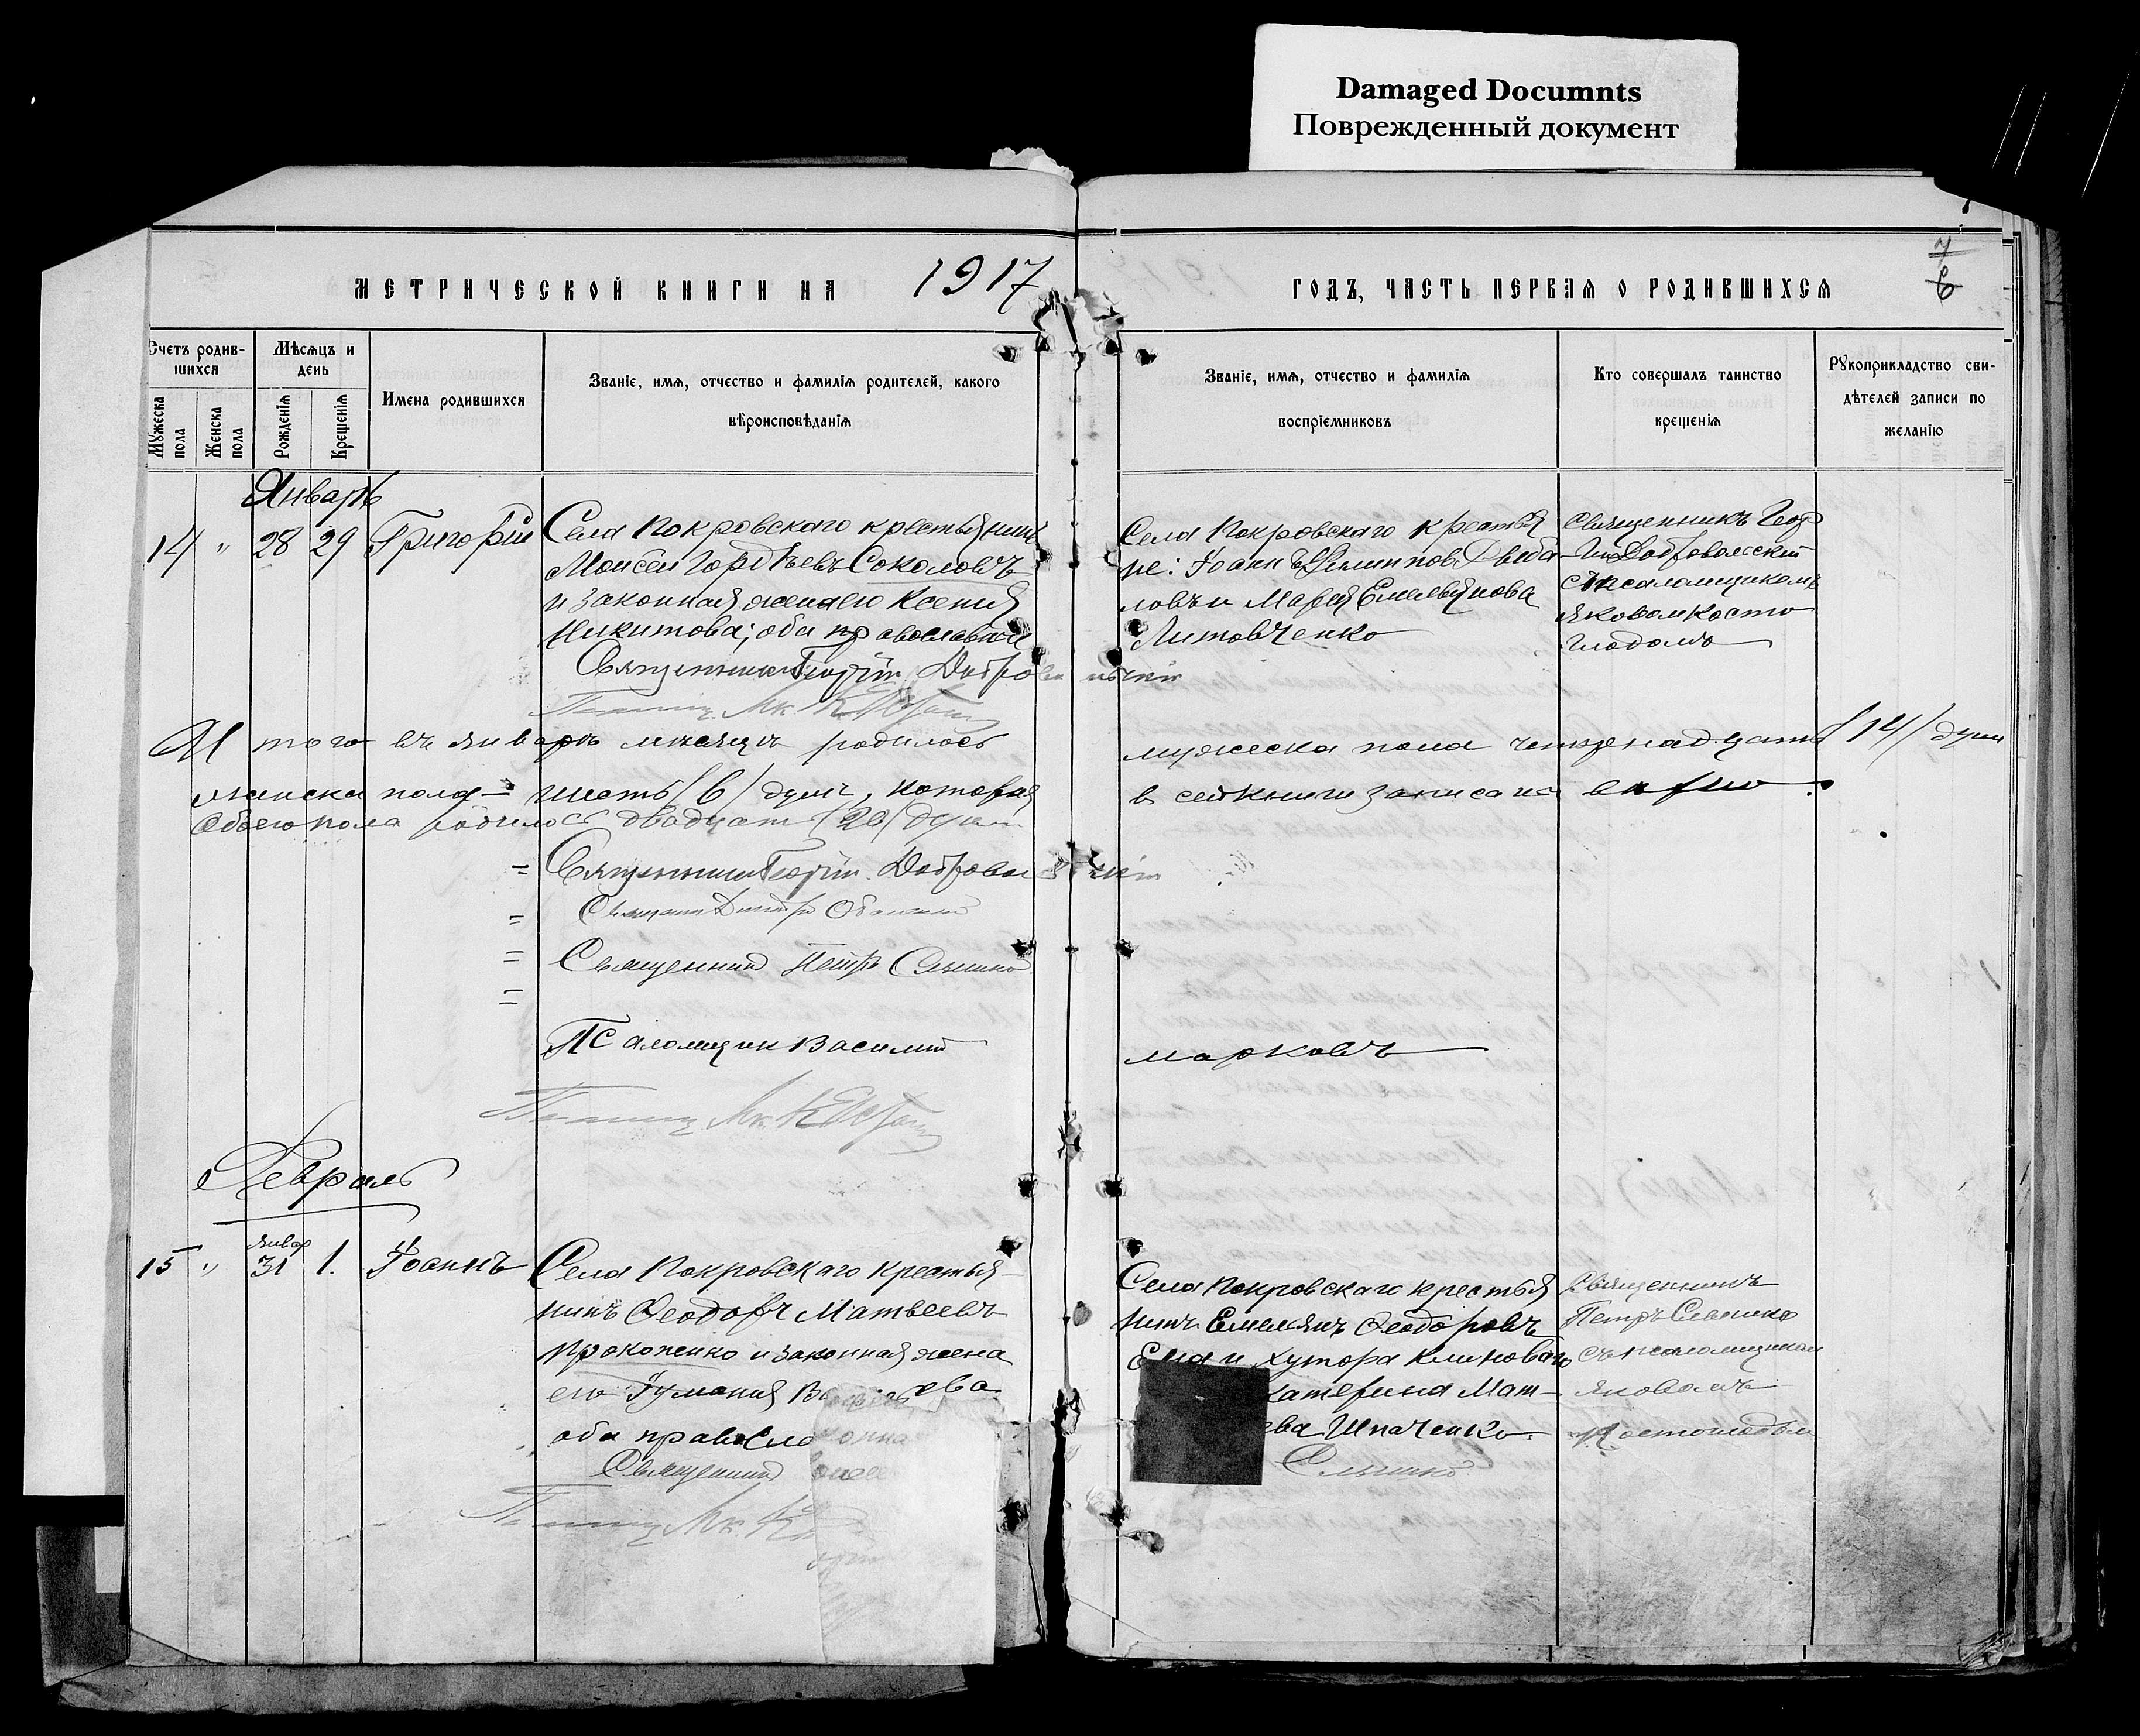 Damaged Documnts
Поврежденный документ
МЕТРИЧЕСКОЙ КНИГИ НА 1917 ГОДЪ, ЧАСТЬ ПЕРВАЯ О РОДИВШИХСЯ
7
6
Счетъ родив-
шихся
Мужеска
пола
Женска
пола
Мѣсяцъ и
день
Рожденія
Крещенія
Имена родившихся
Званіе, имя, отчество и фамилія родителей, какого
вѣроисповѣданія
Званіе, имя, отчество и фамилія
воспріемниковъ
Кто совершалъ таинство
крещенія
Рукоприкладство сви-
дѣтелей записи по
желанію
Январь
14 " 28 29 Григорій
Села Покровскаго крестьянинъ
Моисей Гордѣевъ Соколовъ
и законная жена его Ксенія
Никитова; оба православные
Священникъ Георгій Добровольскій
Села Покровскаго крестья
не: Іоаннъ Филиппов
ловъ и Марія Емельянова
Литовченко
Священникъ Геор
гій Добровольскій
съ псаломщикомъ
Яковомъ Косто
глодомъ
Итого въ январѣ мѣсяцѣ родилось мужеска пола четырнадцать /14/ душъ
женска пола – шесть /6/ душъ, которыя в сей книги записана вѣрно.
Обоего пола родилось двадцать /20/ душъ
= Священникъ Георгій Добровольскій
= Священникъ Димитрій
= Священникъ Петръ Слышко
=
Псаломщик Василий Марковъ
Февраль
15 " Январ 31 1. Іоаннъ
Села Покровскаго крестья-
нинъ Ѳеодоръ Матвеевъ
Прокопенко и законная жена
его Іуманія
оба правосла
Священникъ
Слышко
Села Покровскаго крестья
нинъ Емельянъ Ѳеодоровъ
и хутора Клиноваго
катерина Мат-
ева Шпаченко.
Священникъ
Петръ Слышко
съ псаломщикомъ
Яковомъ
Костоглодом